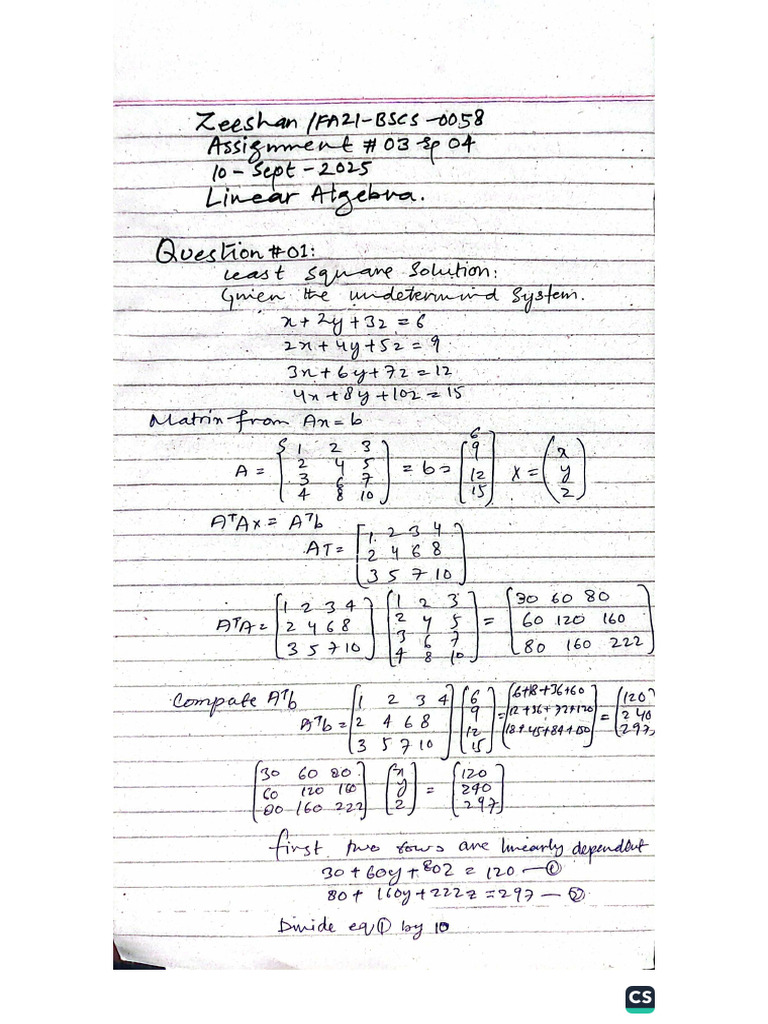 Zeeshan /FA21-BSCS-0058
Assignment # 03 & 04
10-Sept-2025
Linear Algebra.
Question #01:
Least Square Solution:
Given the undetermind System.
x+2y+3z=6
2x+4y+5z=9
3x+6y+7z=12
4x+8y+10z=15
Matrix from Ax=b
A = [1 2 3; 2 4 5; 3 6 7; 4 8 10] = b= [6; 9; 12; 15] X = (x; y; z)
AᵀAx = Aᵀb
AT= [1 2 3 4; 2 4 6 8; 3 5 7 10]
AᵀA= [1 2 3 4; 2 4 6 8; 3 5 7 10] [1 2 3; 2 4 5; 3 6 7; 4 8 10] = [30 60 80; 60 120 160; 80 160 222]
Compute Aᵀb
Aᵀb= [1 2 3 4; 2 4 6 8; 3 5 7 10] [6; 9; 12; 15] = [6+8+36+60; 12+36+72+120; 18+45+84+150] = [120; 240; 297]
[30 60 80; 60 120 160; 80 160 222] [x; y; z] = [120; 240; 297]
first two rows are linearly dependent
30+60y+80z=120 — ①
80+160y+222z=297 — ②
Divide eq ① by 10
CS